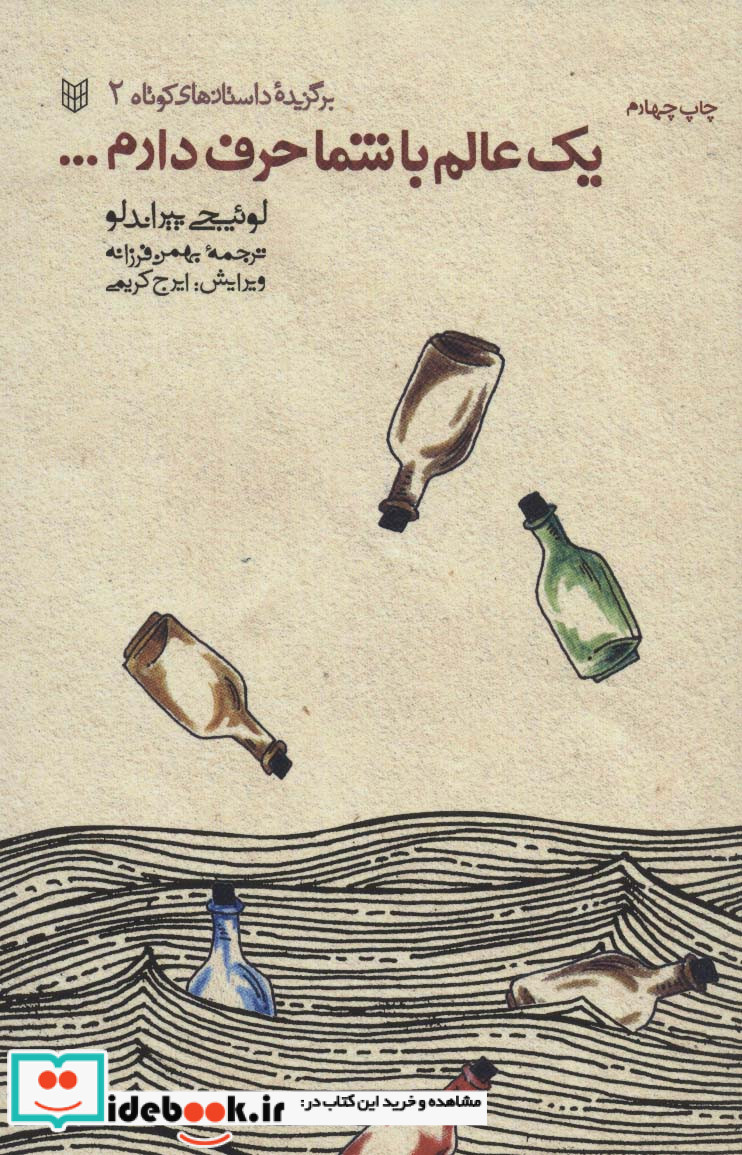 چاپ چهارم
برگزیدهٔ داستان‌های کوتاه ۲
یک عالم با شما حرف دارم ...
لوئیجی پیراندلو
ترجمهٔ بهمن فرزانه
ویرایش: ایرج کریمی
مشاهده و خرید این کتاب در:
idebook.ir